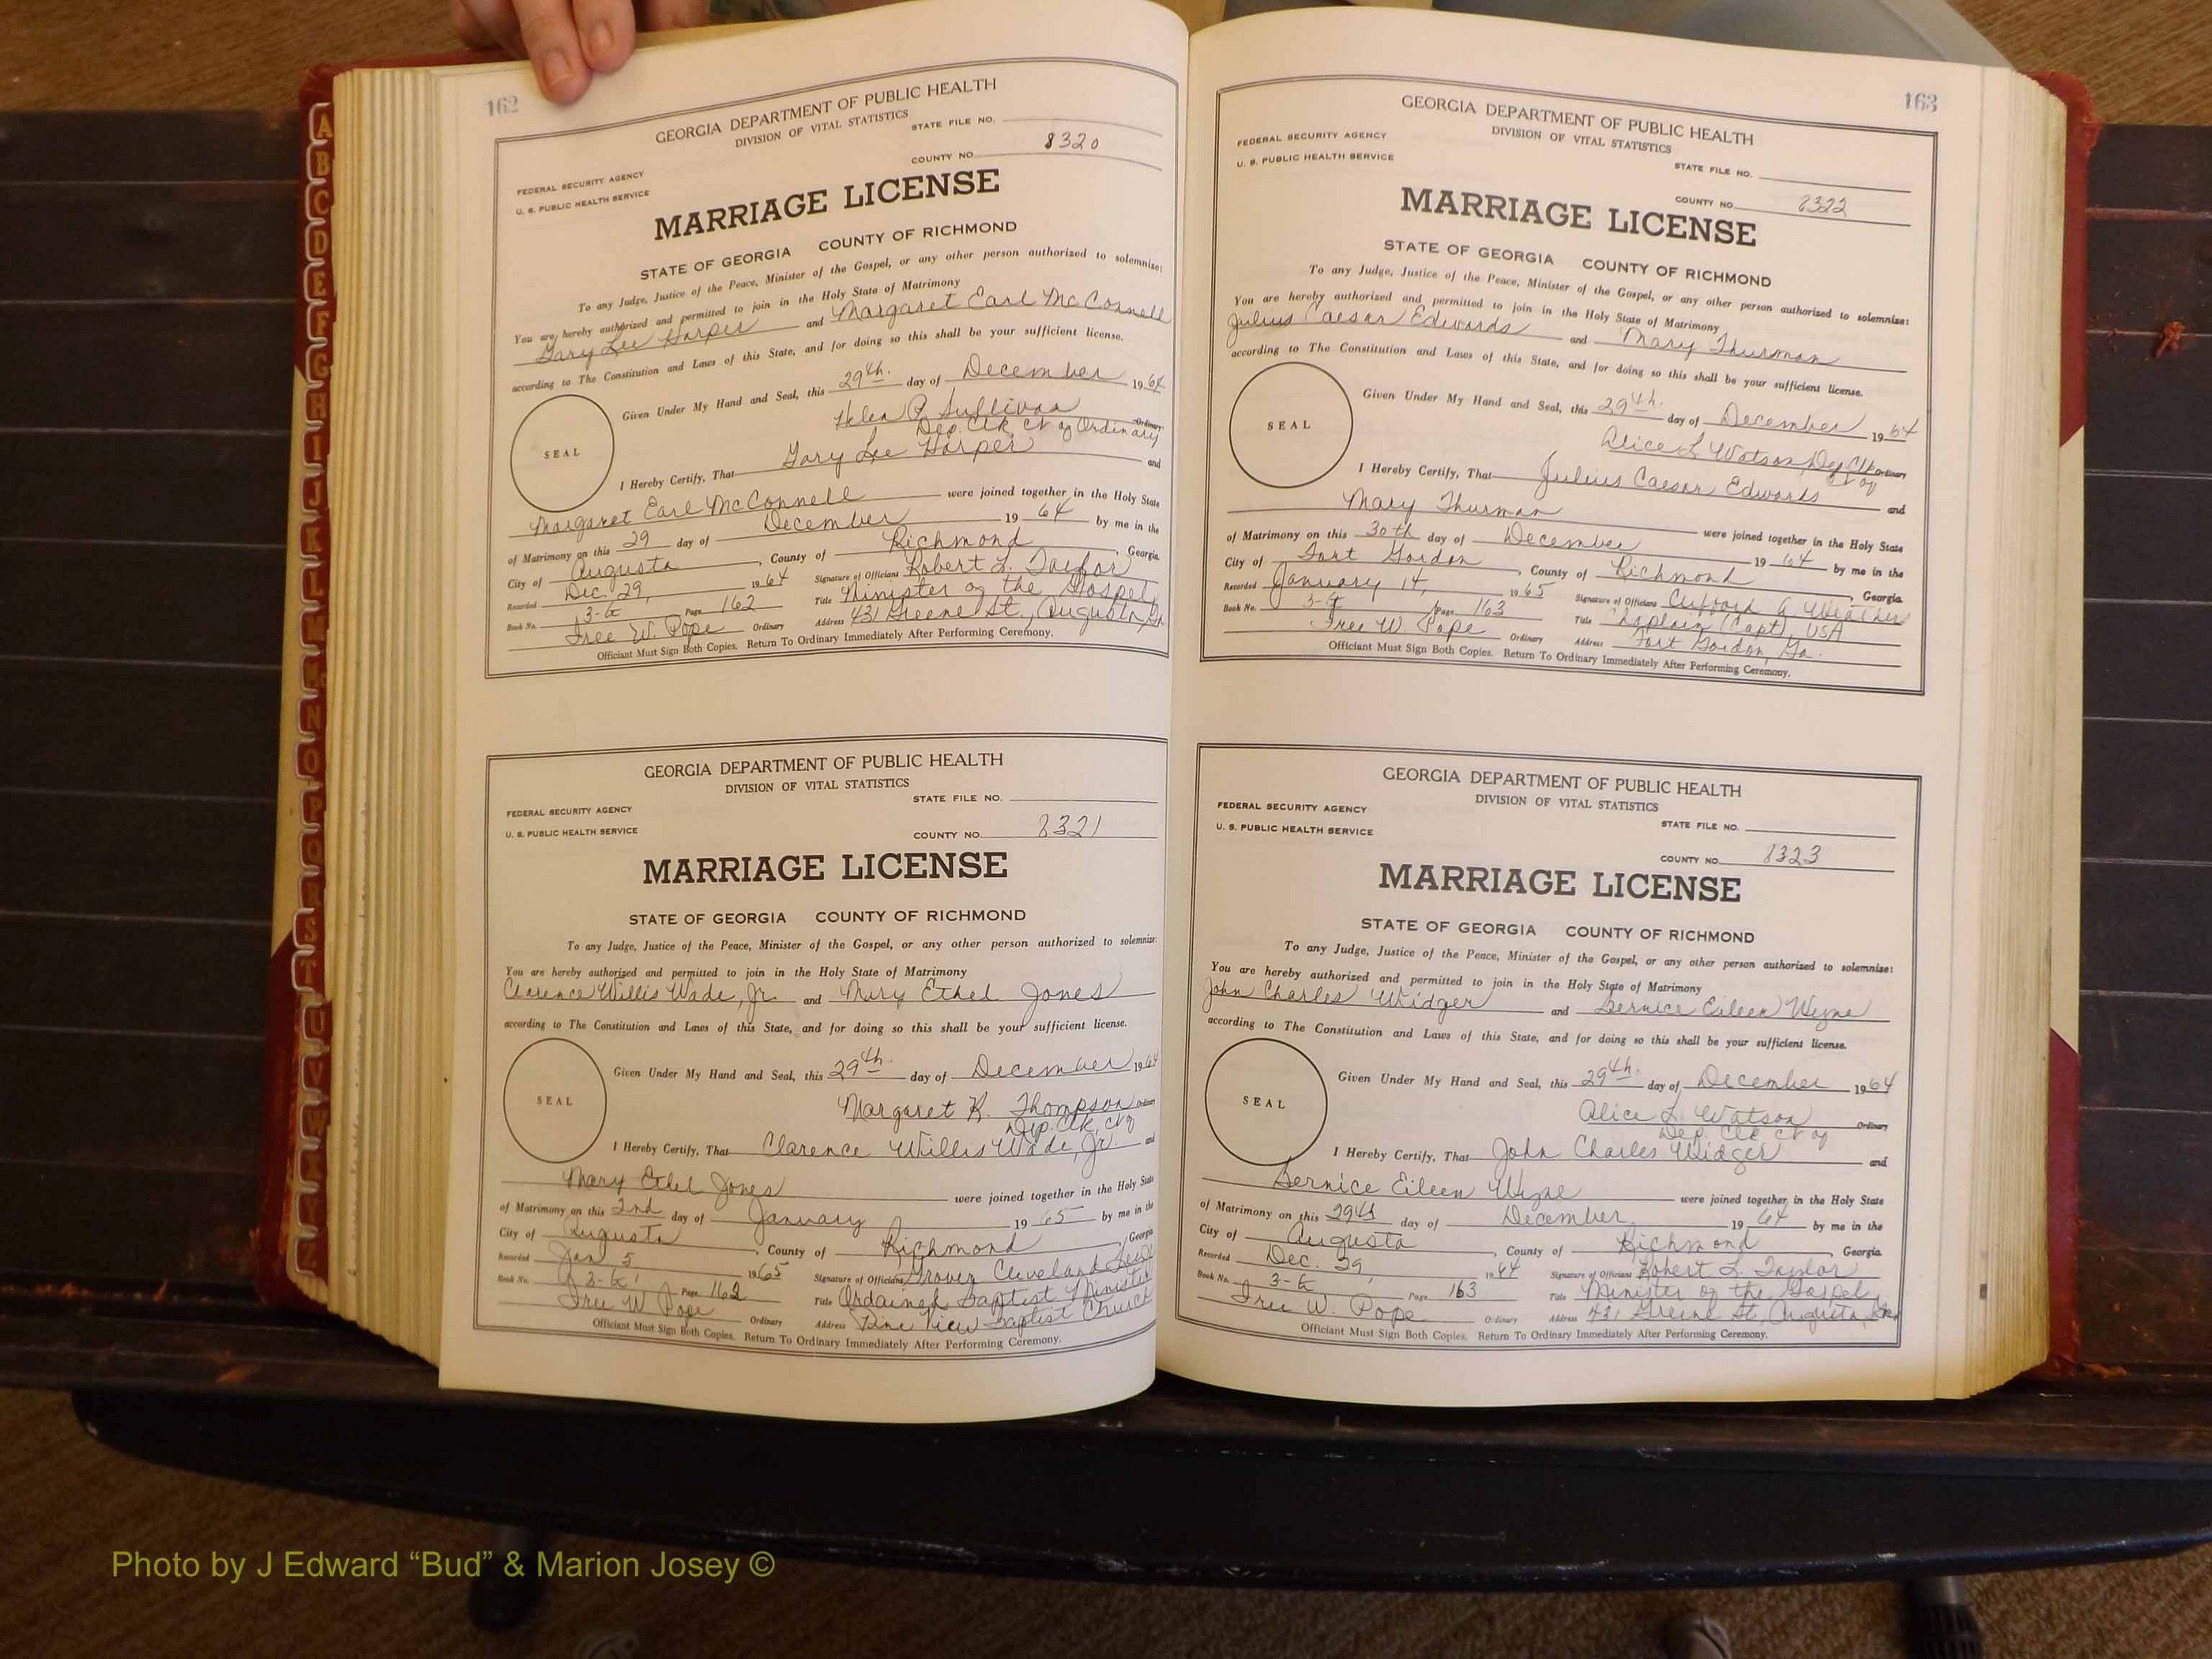 162
GEORGIA DEPARTMENT OF PUBLIC HEALTH
DIVISION OF VITAL STATISTICS
STATE FILE NO.
FEDERAL SECURITY AGENCY
U. S. PUBLIC HEALTH SERVICE
COUNTY NO. 8320
MARRIAGE LICENSE
STATE OF GEORGIA COUNTY OF RICHMOND
To any Judge, Justice of the Peace, Minister of the Gospel, or any other person authorized to solemnize:
You are hereby authorized and permitted to join in the Holy State of Matrimony
Gary Lee Harper and Margaret Earl McConnell
according to The Constitution and Laws of this State, and for doing so this shall be your sufficient license.
Given Under My Hand and Seal, this 29th. day of December 1964
Helen P. Sullivan Ordinary
Dep. Clk Ct of Ordinary
SEAL
I Hereby Certify, That Gary Lee Harper and
Margaret Earl McConnell were joined together in the Holy State
of Matrimony on this 29 day of December 19 64 by me in the
City of Augusta, County of Richmond, Georgia.
Recorded Dec. 29, 1964 Signature of Officiant Robert L. Taylor
Book No. 3-G Page 162 Title Minister of the Gospel
Tree W. Pope Ordinary Address 431 Greene St., Augusta, Ga
Officiant Must Sign Both Copies. Return To Ordinary Immediately After Performing Ceremony.
GEORGIA DEPARTMENT OF PUBLIC HEALTH
DIVISION OF VITAL STATISTICS
STATE FILE NO.
FEDERAL SECURITY AGENCY
U. S. PUBLIC HEALTH SERVICE
COUNTY NO. 8321
MARRIAGE LICENSE
STATE OF GEORGIA COUNTY OF RICHMOND
To any Judge, Justice of the Peace, Minister of the Gospel, or any other person authorized to solemnize:
You are hereby authorized and permitted to join in the Holy State of Matrimony
Clarence Willis Wade, Jr. and Mary Ethel Jones
according to The Constitution and Laws of this State, and for doing so this shall be your sufficient license.
Given Under My Hand and Seal, this 29th. day of December 1964
Margaret K. Thompson Ordinary
Dep. Clk. Ct of
SEAL
I Hereby Certify, That Clarence Willis Wade, Jr. and
Mary Ethel Jones were joined together in the Holy State
of Matrimony on this 2nd day of January 19 65 by me in the
City of Augusta, County of Richmond, Georgia
Recorded Jan 5 1965 Signature of Officiant Grover Cleveland
Book No. 3-G Page 162 Title Ordained Baptist Minister
Tree W. Pope Ordinary Address Pine View Baptist Church
Officiant Must Sign Both Copies. Return To Ordinary Immediately After Performing Ceremony.
163
GEORGIA DEPARTMENT OF PUBLIC HEALTH
DIVISION OF VITAL STATISTICS
FEDERAL SECURITY AGENCY
U. S. PUBLIC HEALTH SERVICE
STATE FILE NO.
COUNTY NO. 8322
MARRIAGE LICENSE
STATE OF GEORGIA COUNTY OF RICHMOND
To any Judge, Justice of the Peace, Minister of the Gospel, or any other person authorized to solemnize:
You are hereby authorized and permitted to join in the Holy State of Matrimony
Julius Caesar Edwards and Mary Thurman
according to The Constitution and Laws of this State, and for doing so this shall be your sufficient license.
Given Under My Hand and Seal, this 29th. day of December 1964
Alice L Watson, Dep Clk Ordinary
Ct of
SEAL
I Hereby Certify, That Julius Caesar Edwards and
Mary Thurman were joined together in the Holy State
of Matrimony on this 30th day of December 19 64 by me in the
City of Fort Gordon, County of Richmond, Georgia.
Recorded January 14, 1965 Signature of Officiant Clifford G Weathers
Book No. 3-G Page 163 Title Chaplain (Capt), USA
Tree W. Pope Ordinary Address Fort Gordon, Ga.
Officiant Must Sign Both Copies. Return To Ordinary Immediately After Performing Ceremony.
GEORGIA DEPARTMENT OF PUBLIC HEALTH
DIVISION OF VITAL STATISTICS
FEDERAL SECURITY AGENCY
U. S. PUBLIC HEALTH SERVICE
STATE FILE NO.
COUNTY NO. 8323
MARRIAGE LICENSE
STATE OF GEORGIA COUNTY OF RICHMOND
To any Judge, Justice of the Peace, Minister of the Gospel, or any other person authorized to solemnize:
You are hereby authorized and permitted to join in the Holy State of Matrimony
John Charles Widger and Bernice Eileen Wyne
according to The Constitution and Laws of this State, and for doing so this shall be your sufficient license.
Given Under My Hand and Seal, this 29th. day of December 1964
Alice L. Watson Ordinary
Dep. Clk Ct of
SEAL
I Hereby Certify, That John Charles Widger and
Bernice Eileen Wyne were joined together in the Holy State
of Matrimony on this 29th day of December 19 64 by me in the
City of Augusta, County of Richmond, Georgia.
Recorded Dec. 29, 1964 Signature of Officiant Robert L. Taylor
Book No. 3-G Page 163 Title Minister of the Gospel
Tree W. Pope Ordinary Address 431 Greene St, Augusta,
Officiant Must Sign Both Copies. Return To Ordinary Immediately After Performing Ceremony.
A
B
C
D
E
F
G
H
I
J
K
L
M
Mc
N
O
P
Q
R
S
T
U
V
W
X
Y
Z
Photo by J Edward “Bud” & Marion Josey ©